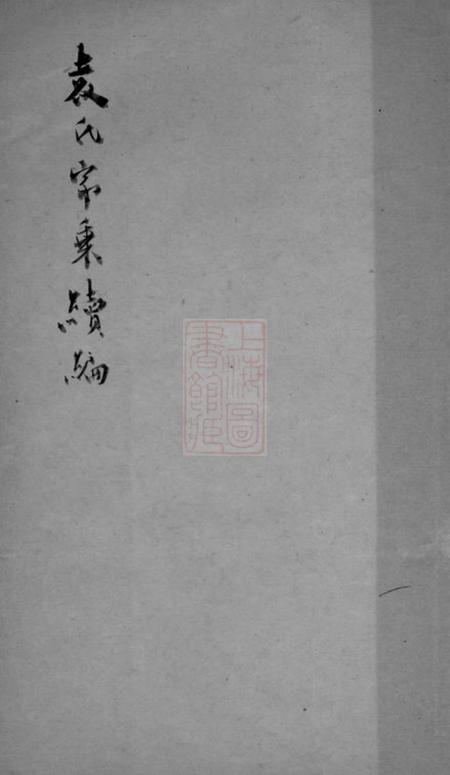 袁氏家乘續編
上海圖書館藏